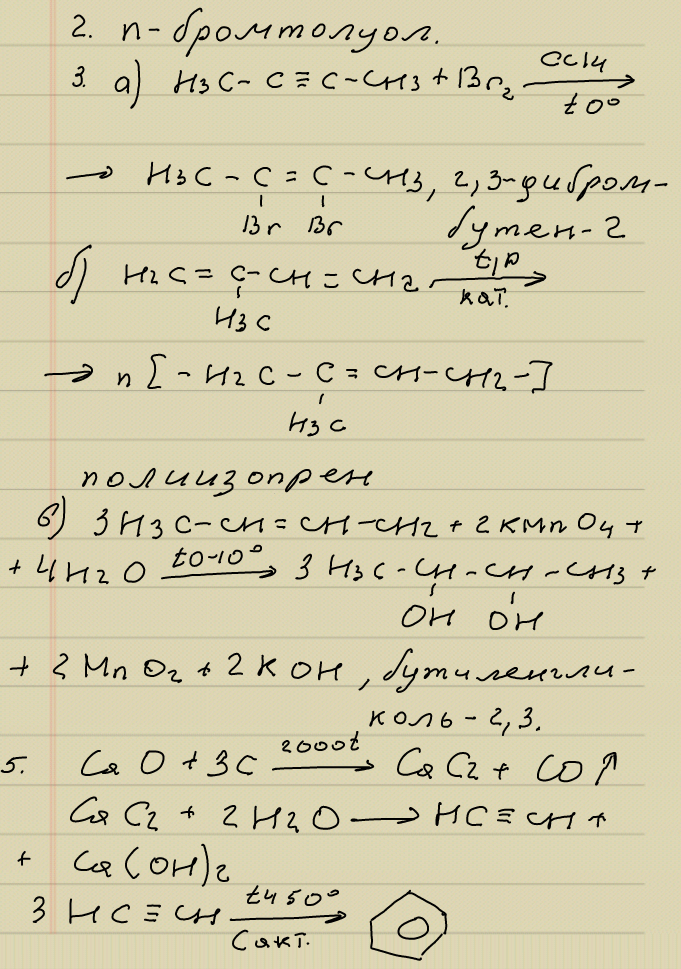 2. п-бромтолуол.
3. а) H3C-C≡C-CH3+Br2 CCl4 t0° →
→ H3C-C=C-CH3, 2,3-дибром-
Br Br бутен-2
б) H2C=C-CH=CH2 t,p кат. →
H3C
→ n[-H2C-C=CH-CH2-]
H3C
полиизопрен
в) 3H3C-CH=CH-CH2+2KMnO4+
+4H2O t0-10° → 3H3C-CH-CH-CH3+
OH OH
+2MnO2+2KOH, бутиленгли-
коль-2,3.
5. CaO+3C 2000t → CaC2+CO↑
CaC2+2H2O → HC≡CH+
+Ca(OH)2
3HC≡CH t450° Cакт. →